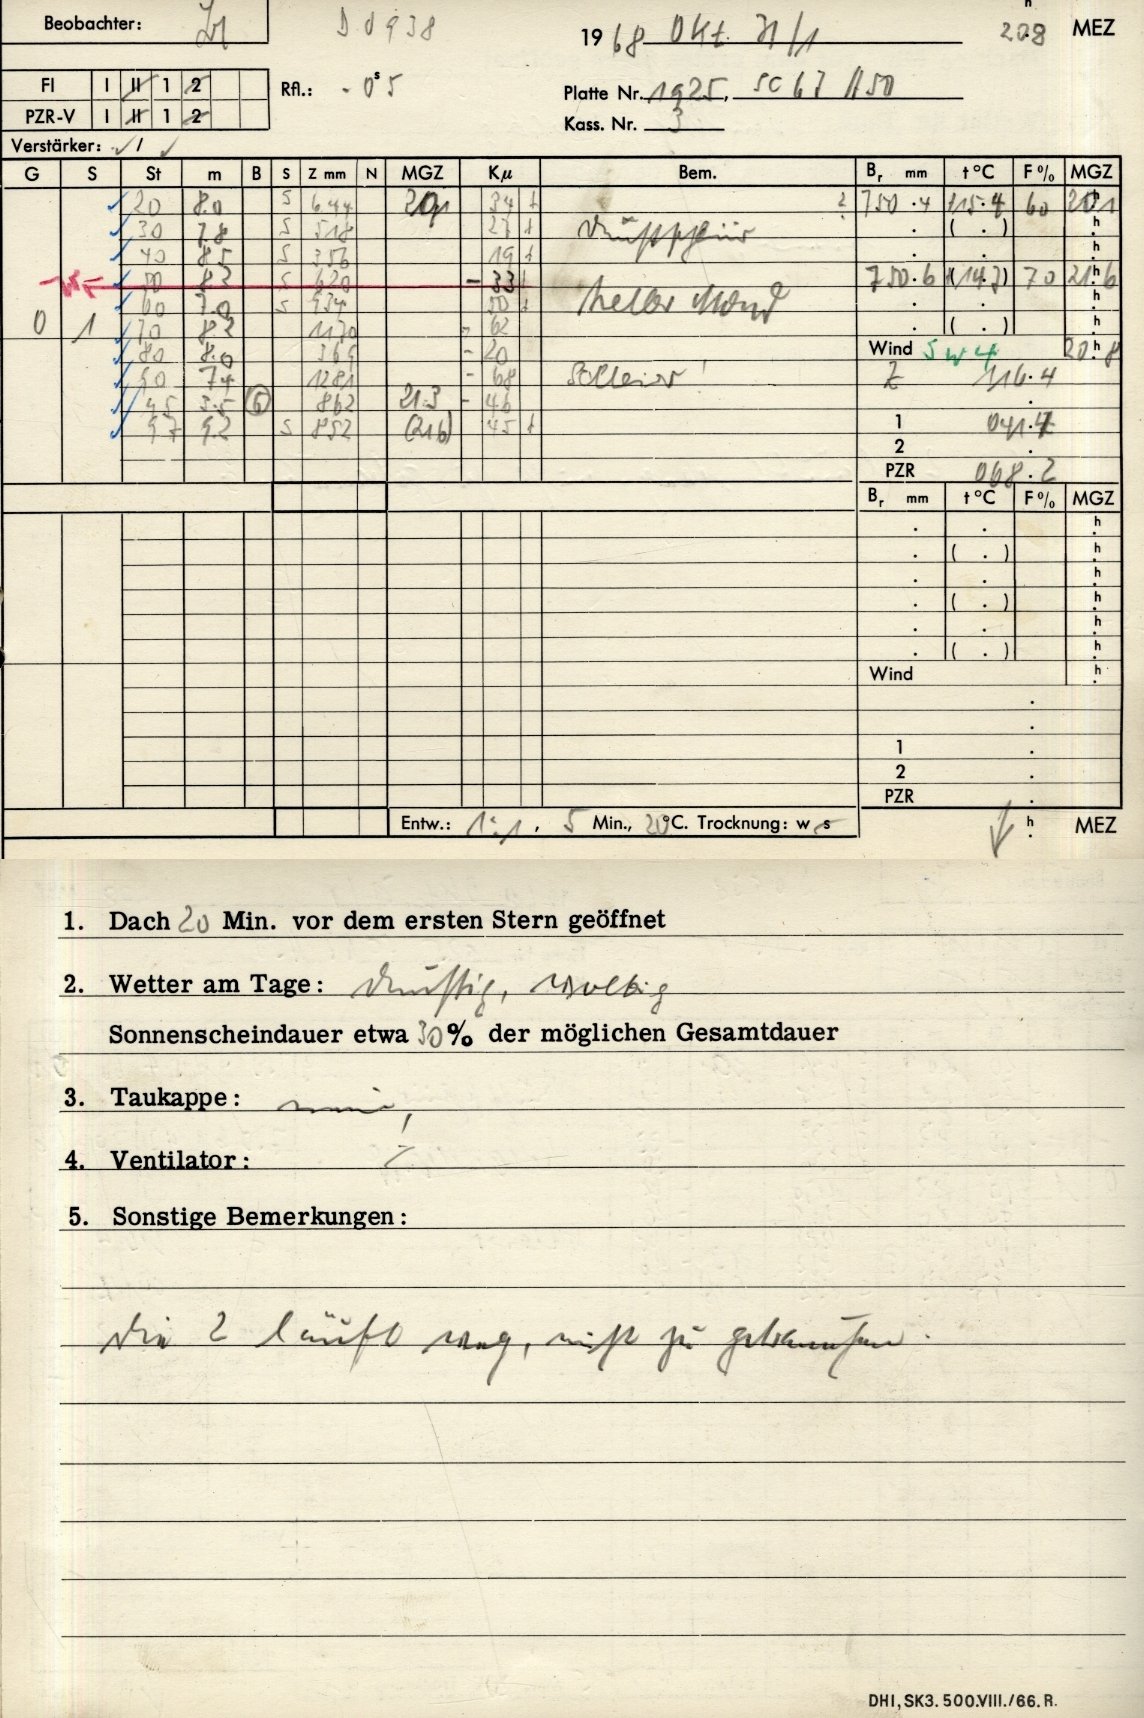 Beobachter: D 0938 1968 Okt. 31/1 20.8 h MEZ
Fl I II 1 2 Rfl.: - 0 s 5 Platte Nr. 1925, SC 67 A50
PZR-V I II 1 2 Kass. Nr. 3
Verstärker: ✓ / ✓
G S St m B S Z mm N MGZ Kμ Bem. Br mm t°C F% MGZ
20 8.0 S 644 34 + 750.4 60 h
30 7.8 S 518 27 + . ( . ) h
40 8.5 S 356 19 + . . h
50 8.3 S 620 - 33 + 750.6 (14.3) 70 21.6 h
60 7.0 S 934 50 + heller Mond . . h
0 1 70 8.2 1170 - 62 . ( . ) h
80 8.0 369 - 20 Wind SW 4 20.8 h
90 7.4 1281 - 68 Schleier! Z 116.4
45 3.5 6 862 21.3 - 46 .
97 9.2 S 852 (21.6) 45 + 1 041.7
2 .
PZR 068.2
Br mm t°C F% MGZ
. . h
. ( . ) h
. . h
. ( . ) h
. . h
. ( . ) h
Wind h
.
.
1 .
2 .
PZR .
Entw.: , 5 Min., 20°C. Trocknung: w s h MEZ
1. Dach 20 Min. vor dem ersten Stern geöffnet
2. Wetter am Tage: dunstig, wolkig
Sonnenscheindauer etwa 30% der möglichen Gesamtdauer
3. Taukappe: nein,
4. Ventilator:
5. Sonstige Bemerkungen:
Die 2 läuft weg, nicht zu gebrauchen.
DHI, SK3. 500.VIII./66. R.